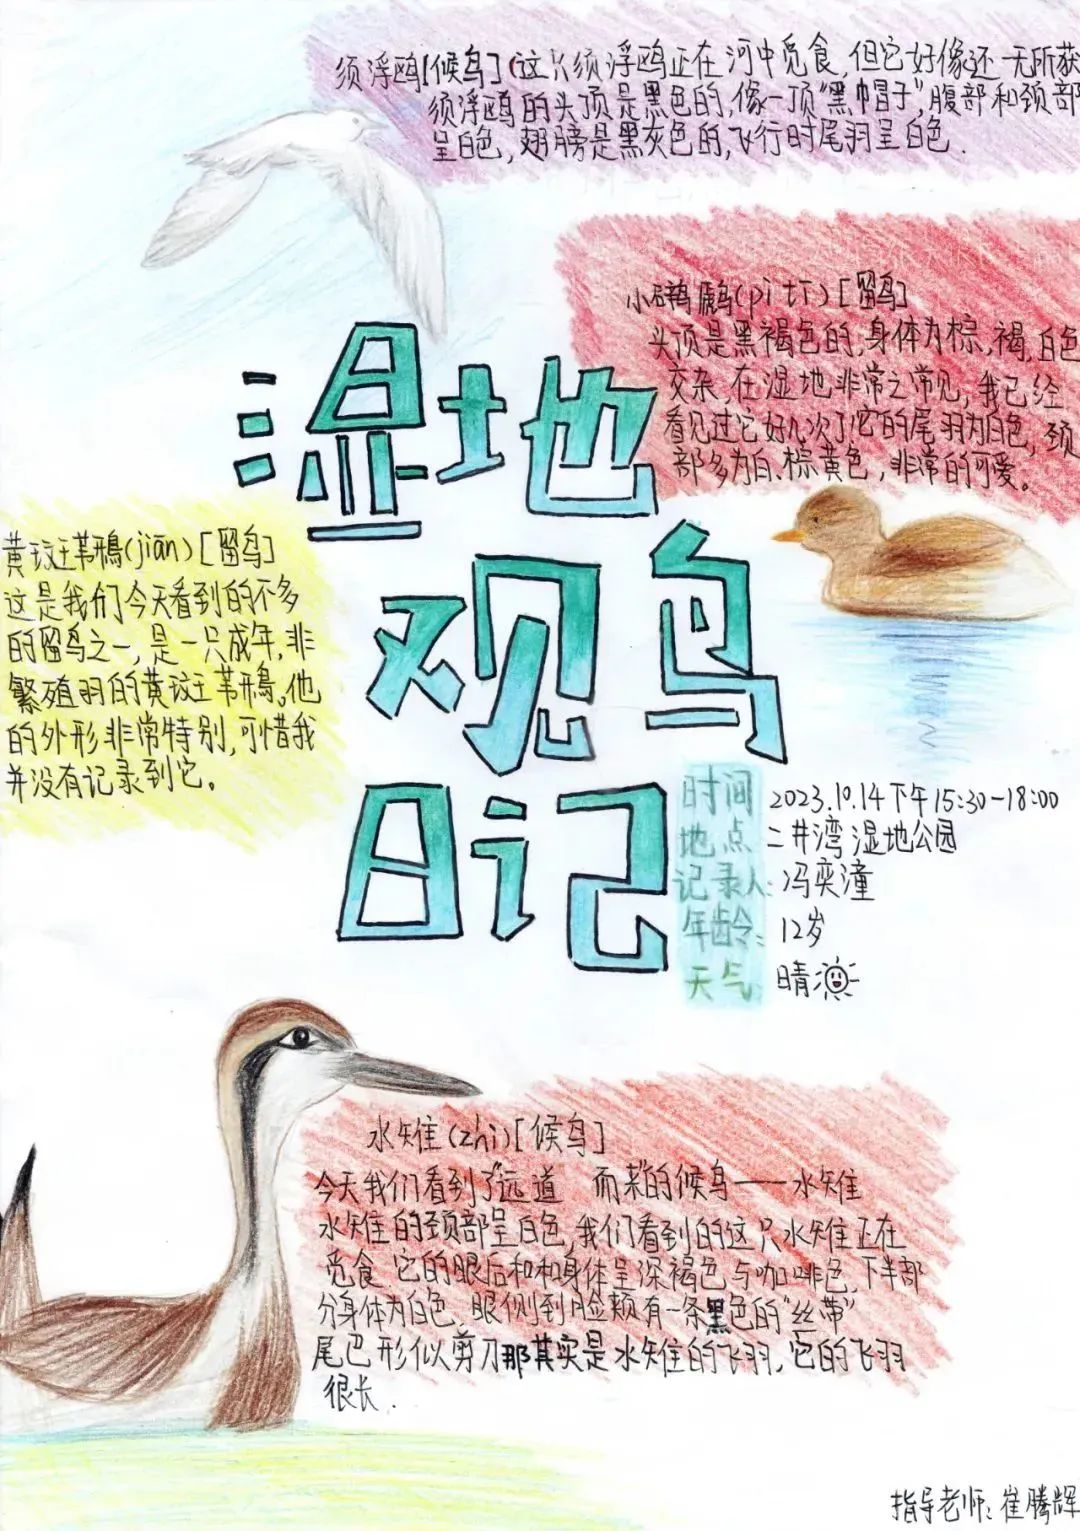 须浮鸥[候鸟](这只须浮鸥正在河中觅食,但它好像还一无所获
须浮鸥的头顶是黑色的,像一顶“黑帽子”,腹部和颈部
呈白色,翅膀是黑灰色的,飞行时尾羽呈白色.
小䴙䴘(pì tī)[留鸟]
头顶是黑褐色的,身体为棕,褐,白色
交杂,在湿地非常之常见,我已经
看见过它好几次了它的尾羽为白色,颈
部多为白、棕黄色,非常的可爱。
湿地
观鸟
日记
黄斑苇鳽(jiān)[留鸟]
这是我们今天看到的不多
的留鸟之一,是一只成年,非
繁殖羽的黄斑苇鳽。他
的外形非常特别,可惜我
并没有记录到它。
时间 2023.10.14下午15:30-18:00
地点 二井湾湿地公园
记录人:冯奕潼
年龄:12岁
天气 晴
水雉(zhì)[候鸟]
今天我们看到了“远道而来”的候鸟——水雉
水雉的颈部呈白色,我们看到的这只水雉正在
觅食.它的眼后和和身体呈深褐色与咖啡色,下半部
分身体为白色,眼侧到脸颊有一条黑色的“丝带”
尾巴形似剪刀那其实是水雉的飞羽,它的飞羽
很长.
指导老师:崔腾辉